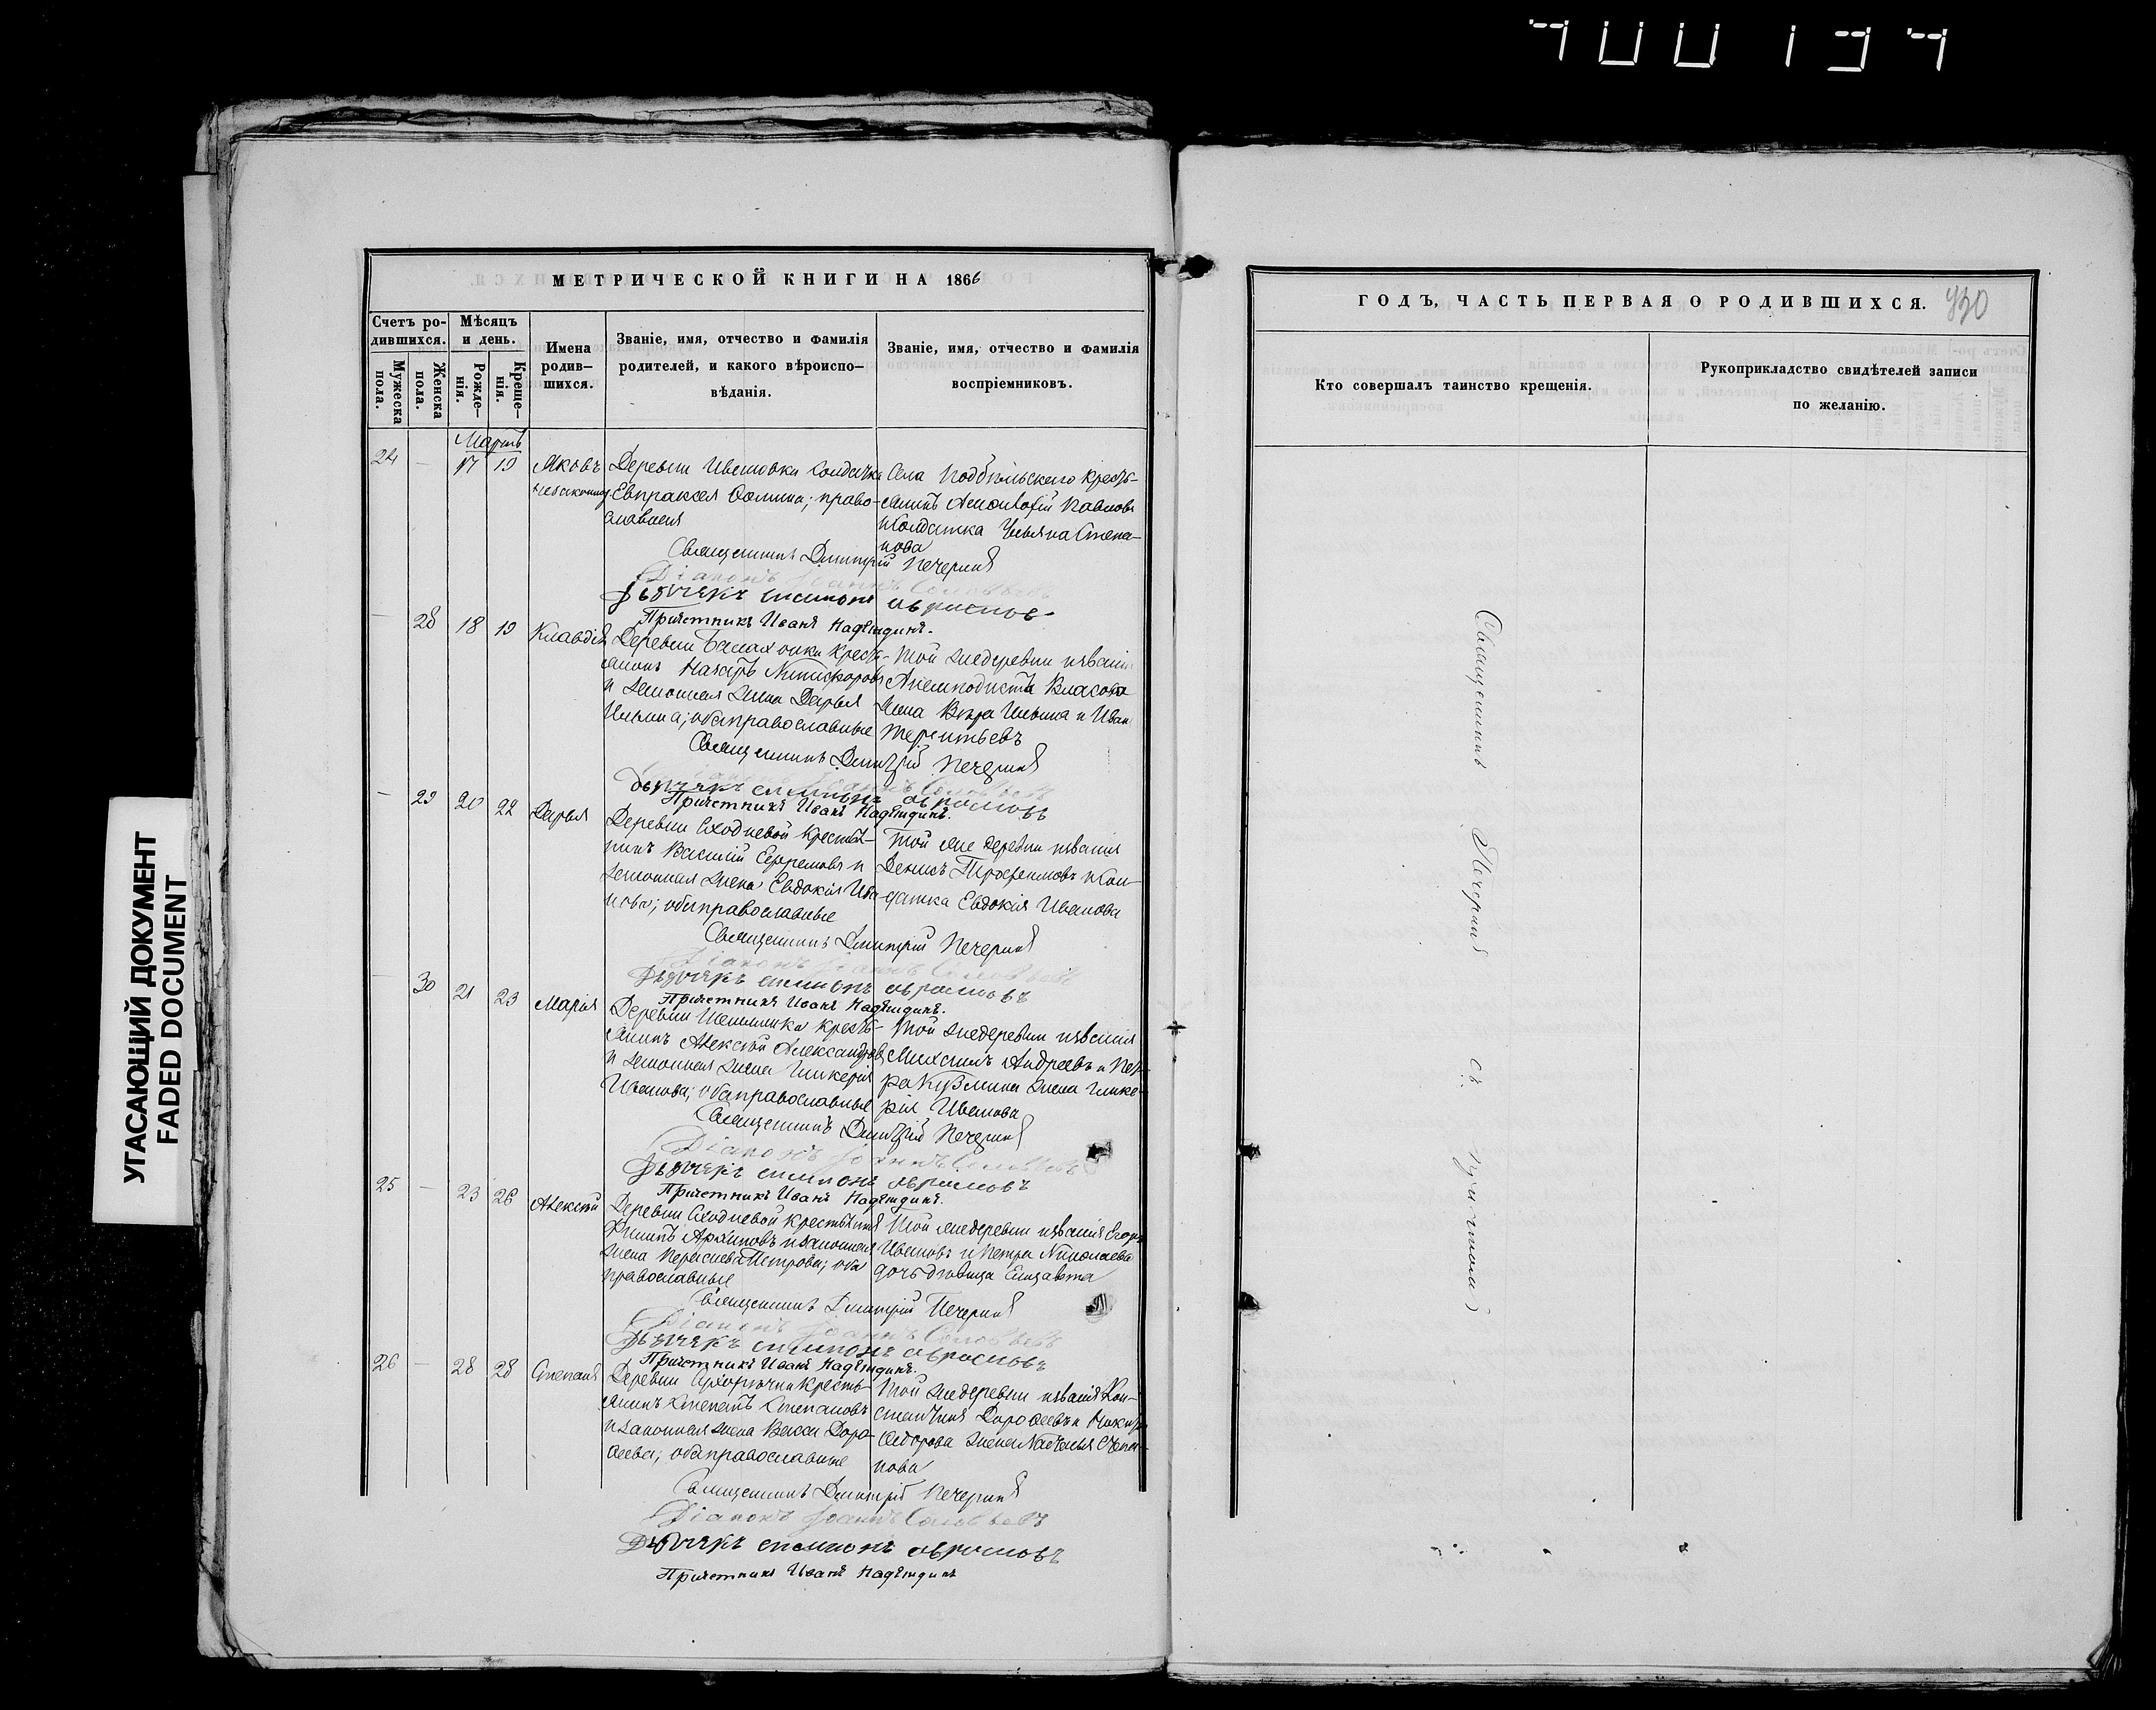 УГАСАЮЩИЙ ДОКУМЕНТ
FADED DOCUMENT
МЕТРИЧЕСКОЙ КНИГИ НА 1866
Счетъ ро-
дившихся.
Мужеска
пола.
Женска
пола.
Мѣсяцъ
и день.
Рожде-
нія.
Креще-
нія.
Имена
родив-
шихся.
Званіе, имя, отчество и фамилія
родителей, и какого вѣроиспо-
вѣданія.
Званіе, имя, отчество и фамилія
воспріемниковъ.
Мартъ
24 — 17 19 Яковъ
незаконнор.
Деревни Ивановки солдатка
Евпраксея Фомина; право-
славная
Села Подбѣльскаго кресть-
янинъ Павловъ
и солдатка Ульяна Степа-
нова
Священникъ Димитрій Печеринъ
Діаконъ Іоаннъ Соловьевъ
Дьячекъ Симионъ Аврамовъ
Причетникъ Иванъ Надѣждинъ.
— 28 18 19 Клавдія
Деревни Балахонки кресть-
янинъ Назаръ Никифоровъ
и законная жена Дарья
Ильина; оба православные
Той же деревни удѣльнаго
Власова
жена Вѣра Ильина и Иван
Терентьевъ
Священникъ Димитрій Печеринъ
Дьячекъ Симионъ Аврамовъ
Причетникъ Иванъ Надѣждинъ.
— 29 20 22 Дарья
Деревни Сходневой крестья-
нинъ Василій Ефремовъ и
законная жена Евдокія Ива-
нова; оба православные
Той же деревни
Денисъ Трофимовъ и сол-
датка Евдокія Иванова
Священникъ Димитрій Печеринъ
Діаконъ Іоаннъ Соловьевъ
Дьячекъ Симионъ Аврамовъ
Причетникъ Иванъ Надѣждинъ.
— 30 21 23 Марія
Деревни кресть-
янинъ Алексѣй Александровъ
и законная жена Гликерія
Иванова; оба православные
Той же деревни
Михаилъ Андреевъ и Пет-
ра Кузмина жена Глике-
рія Иванова
Священникъ Димитрій Печеринъ
Діаконъ Іоаннъ Соловьевъ
Дьячекъ Симионъ Аврамовъ
Причетникъ Иванъ Надѣждинъ.
25 — 23 26 Алексѣй
Деревни Сходневой крестьянинъ
Филипъ Архиповъ и законная
жена Петрова; оба
православные
Той же деревни Егоръ
Ивановъ и Петра Николаева
дочь дѣвица Елизавета
Священникъ Димитрій Печеринъ
Діаконъ Іоаннъ Соловьевъ
Дьячекъ Симионъ Аврамовъ
Причетникъ Иванъ Надѣждинъ.
26 — 28 28 Степанъ
Деревни кресть-
янинъ Степанъ Степановъ
и законная жена Васса Доро-
феева; оба православные
Той же деревни Кон-
стантинъ Дорофеевъ и
Федорова жена Наталья Степа-
нова
Священникъ Димитрій Печеринъ
Діаконъ Іоаннъ Соловьевъ
Дьячекъ Симионъ Аврамовъ
Причетникъ Иванъ Надѣждинъ
ГОДЪ, ЧАСТЬ ПЕРВАЯ О РОДИВШИХСЯ.
Кто совершалъ таинство крещенія.
Рукоприкладство свидѣтелей записи
по желанію.
Священникъ Печеринъ съ причтомъ